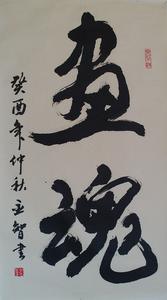 画魂
癸酉年仲秋
王智書